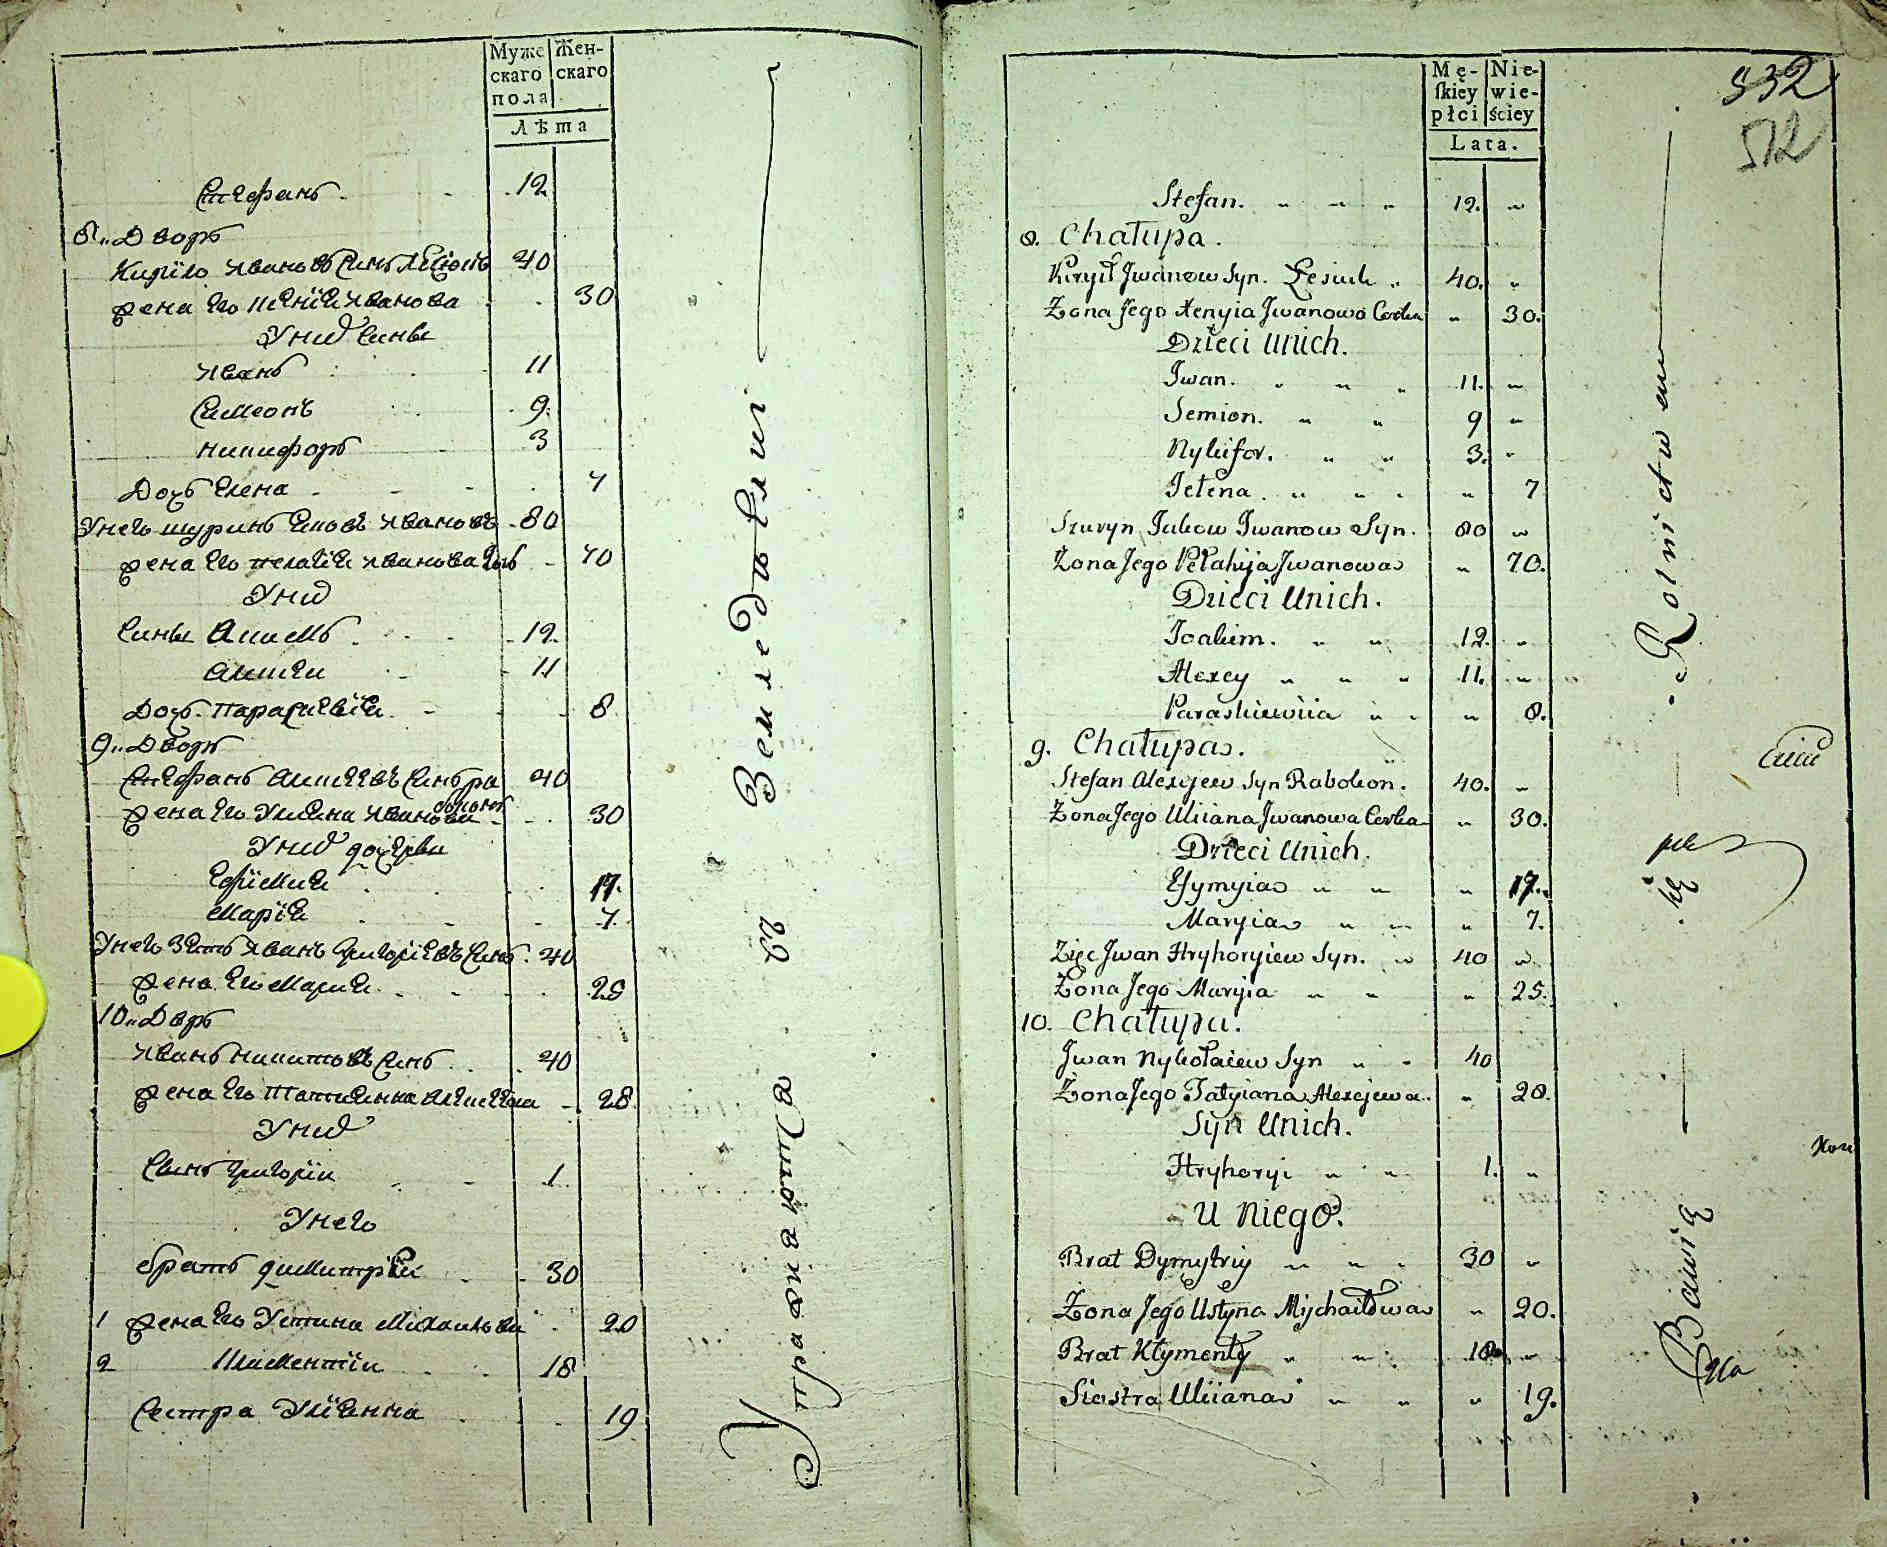 Муже
скаго
пола
Жен-
скаго
Лѣта
Стефанъ 12
8. Дворъ
Кирило Ивановъ Синъ 40
жена Его Ивanова 30
У нид Сины
Иванъ 11
Симеонъ 9
Никифоръ 3
Дочъ Елена 7
У него шуринъ Ивановъ 80
жена Его Пелагїя Иванова 70
У нид
Сины Акимъ 12
Алексѣй 11
Дочъ Параскевїя 8
9. Дворъ
Стефанъ Алексѣевъ Синъ 40
жена Его Улияна Иванова 30
У нид дочерви
Ефїмия 17
Марїя 7
У него Зять Иванъ Григорїевъ Синъ 40
жена Его Мария 25
10. Двръ
Иванъ Никитовъ Синъ 40
жена Его Татияна 28
У нид
Синъ Григорїй 1
У него
братъ димитрїй 30
1 жена Его Устина Михаилова 20
2 Климентїй 18
Сестра Улїянна 19
Упражняются В Земледѣлїи
532
512
Mę-
ſkiéy
płci
Nie-
wie-
ściey
Lata.
Stefan. 12.
8. Chałupa.
Kiryił Jwanow Syn. Łesiuk 40.
Żona Jego Xenyia Jwanowa Corka 30.
Dzieci Unich.
Jwan. 11.
Semion. 9
Nykifor. 3.
Jełena. 7
Szuryn Jakow Jwanow Syn. 80
Żona Jego Pełahija Jwanowa 70.
Dzieci Unich.
Joakim. 12.
Alexey 11.
Paraskiewiia 8.
9. Chałupa.
Stefan Alexyiew Syn Rabokon. 40.
Żona Jego Uliiana Jwanowa Corka 30.
Dzieci Unich.
Efymyia 17.
Maryia 7.
Zięc Jwan Hryhoryiew Syn. 40
Żona Jego Maryia 25.
10. Chałupa.
Jwan Nykołaiew Syn 40
Żona Jego Tatyiana Alexejewa. 28.
Syn Unich.
Hryhoryi 1.
U Niego.
Brat Dymytriy 30
Żona Jego Ustyna Mychaiłowa 20.
Brat Kłymenty 18
Siostra Uliiana 19.
Bawią się Rolnictwem